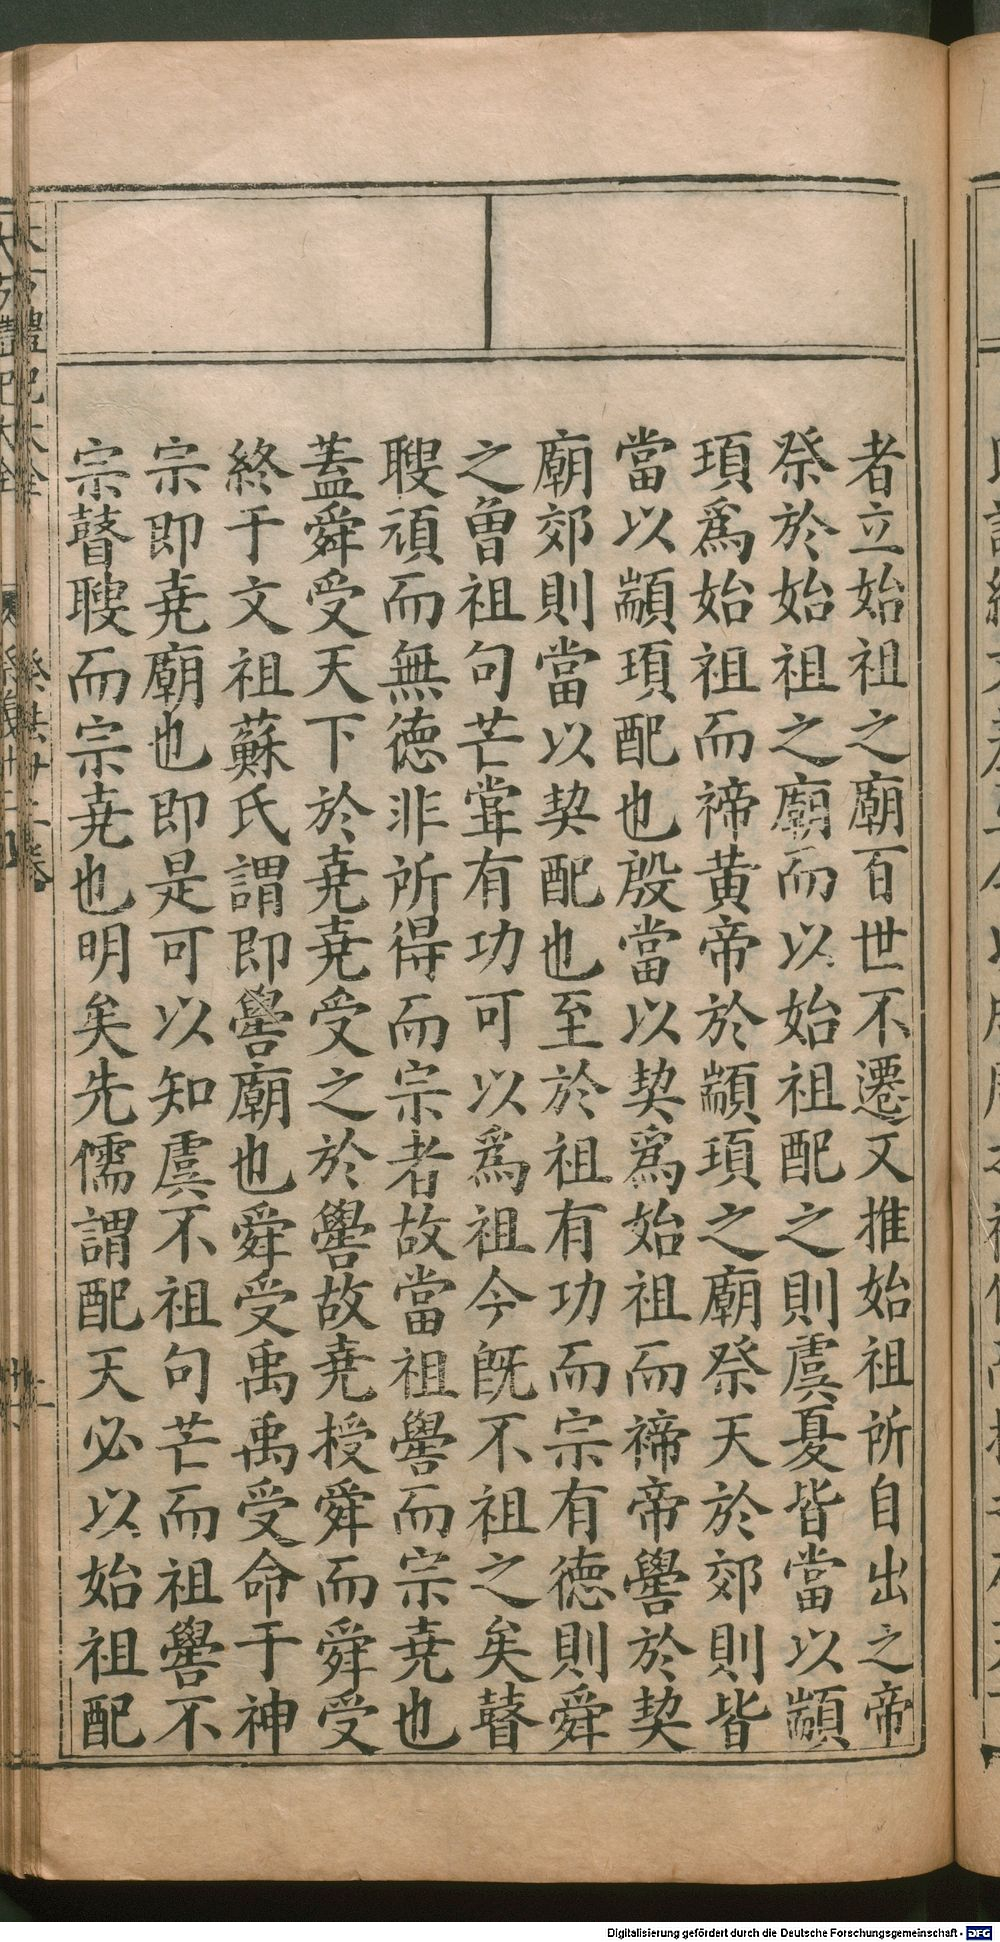 者立始祖之廟百世不遷又推始祖所自出之帝
祭於始祖之廟而以始祖配之則虞夏皆當以顓
頊爲始祖而禘黄帝於顓頊之廟祭天於郊則皆
當以顓頊配也殷當以契爲始祖而禘帝嚳於契
廟郊則當以契配也至於祖有功而宗有德則舜
之曾祖句芒甞有功可以爲祖今旣不祖之矣瞽
瞍頑而無德非所得而宗者故當祖嚳而宗堯也
蓋舜受天下於堯堯受之於嚳故堯授舜而舜受
終于文祖蘇氏謂即嚳廟也舜受禹禹受命于神
宗即堯廟也即是可以知虞不祖句芒而祖嚳不
宗瞽瞍而宗堯也明矣先儒謂配天必以始祖配
Digitalisierung gefördert durch die Deutsche Forschungsgemeinschaft - DFG